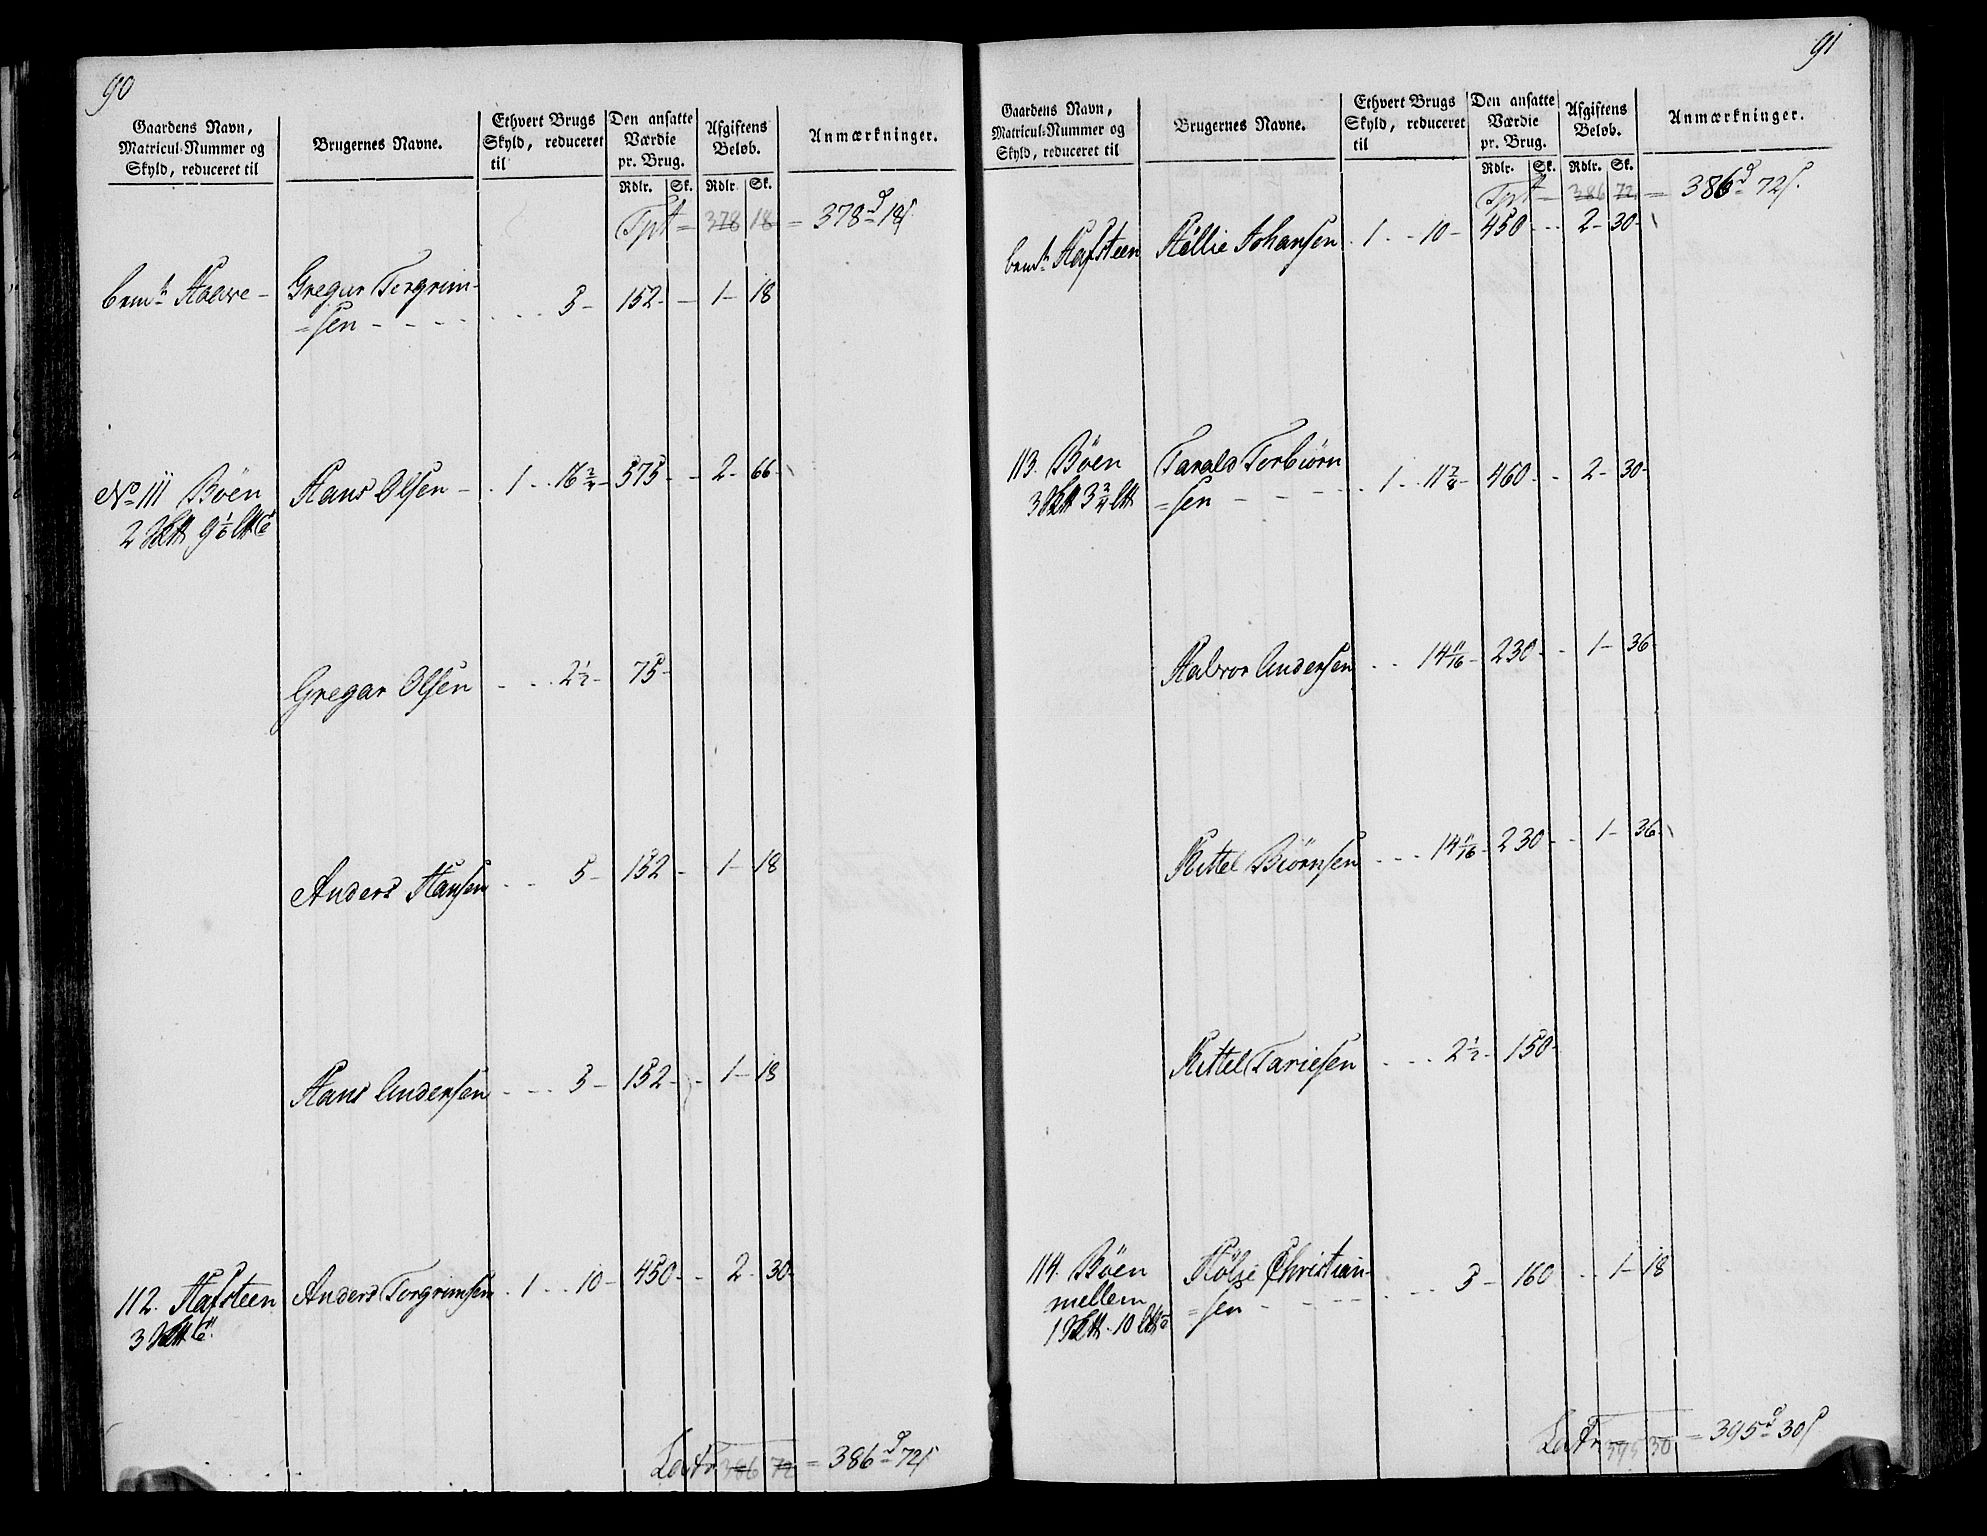 90
Gaardens Navn, Matricul-Nummer og Skyld, reduceret til | Brugernes Navne. | Ethvert Brugs Skyld, reduceret til | Den ansatte Værdie pr. Brug. | Afgiftens Beløb. | Anmærkninger.
Rdlr. Sk. Rdlr. Sk.
Tpt = 378 18 = 378 d 18 s
bemte Haave - Gregar Torgrim- 3 - 152 - - 1 - 18
=sen - - - -
No 111 Böen Hans Olsen - 1 - 16 3/4 - 575 - - 2 - 66 -
2 9 1/6
Gregar Olsen - 2 1/2 - 75 -
Anders Hansen - - 5 - 152 - 1 - 18
Hans Andersen - - - 3 - 152 - - 1 - 18
112. Hafsteen Anders Torgrimsen . 1 . . 10 - 450 - - 2 - 30 -
3
Lat 386 72 = 386 d 72 s
91
Gaardens Navn, Matricul-Nummer og Skyld, reduceret til | Brugernes Navne. | Ethvert Brugs Skyld, reduceret til | Den ansatte Værdie pr. Brug. | Afgiftens Beløb. | Anmærkninger.
Rdlr. Sk. Rdlr. Sk.
Tpt = 386 72 = 386 d 72 s.
bemte Hafsteen Johansen . 1 - - 10 - 450 - - 2 - 30 -
113. Böen Tarald Torbiörn 1 - 11 7/8 - 460 - - 2 - 30 -
3 3 3/4 =sen - - - -
Halvor Andersen - - 14 1/16 - 230 - - 1 - 36 -
Kittel Biörnsen - - - 14 1/16 - 230 - - 1 - 36 -
Kittel Tariesen - - - 2 1/2 - 150 -
114. Böen Christian- 3 - 160 - - 1 - 18
mellem =sen - - - -
1 10
Lat 395 30 = 395 d 30 s